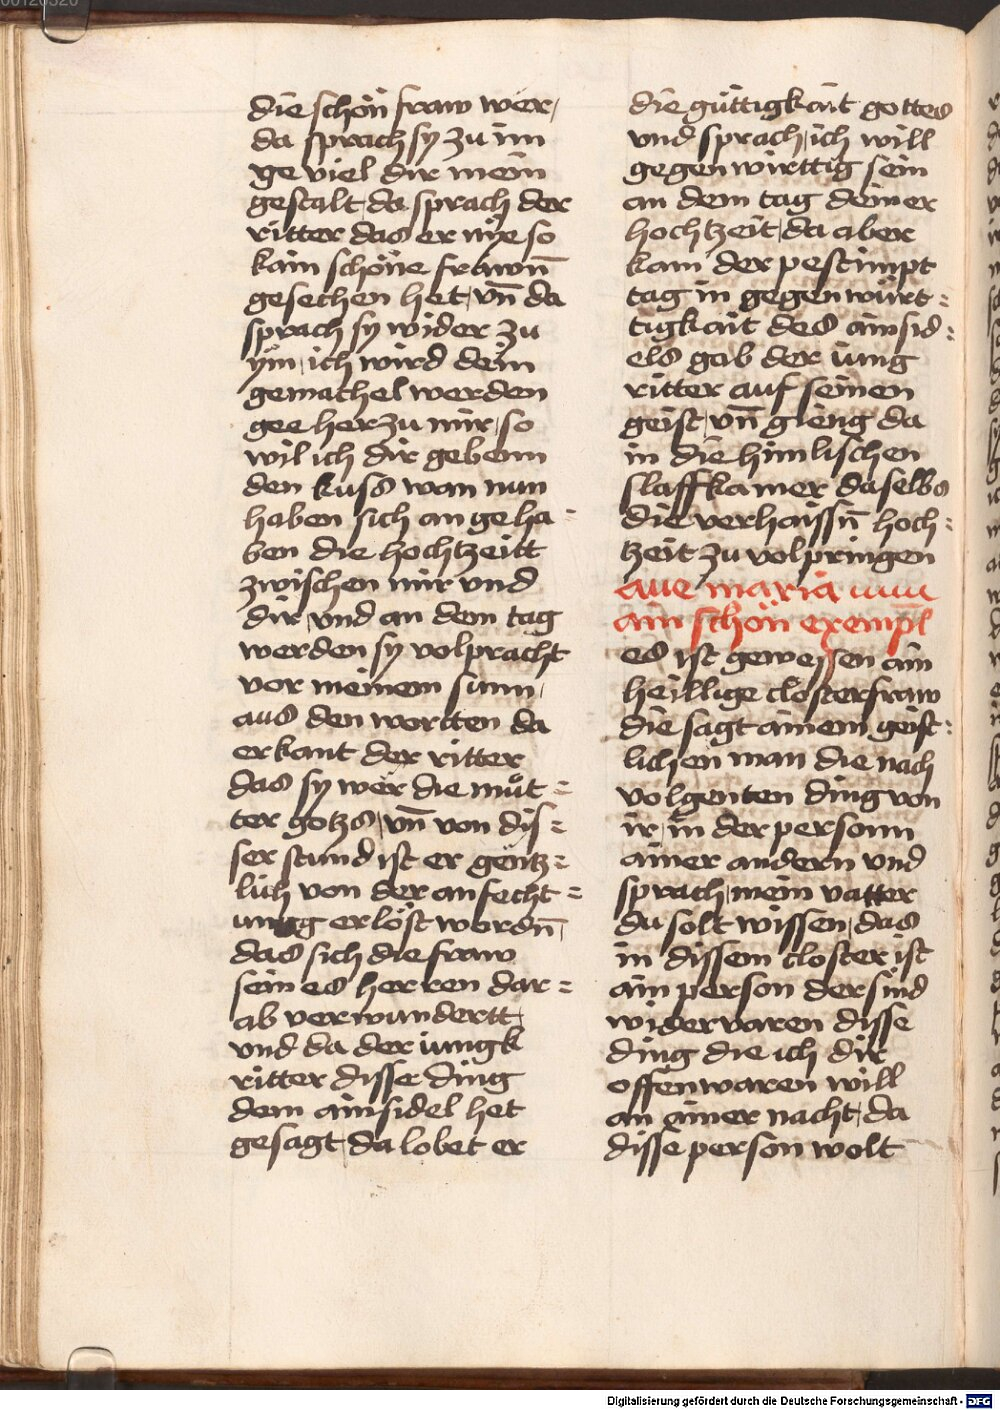 die schön fraw wer,
da sprach sy zu im
ge viel dir mein
gestalt, da sprach der
ritter das er nÿe so
kain schöne frawn̄
gesechen het, vn̄ da
sprach sy wider zu
ÿm, ich wird dein
gemachel werden
gee her zu mir, so
wil ich dir gebenn
den kuss wan nun
haben sich an geha-
ben die hochtzeitt
zwischen mir vnd
dir, vnd an dem tag
werden sy volpracht
vor meinem sunn,
aus den wortten da
erkant der ritter
das sy wer die můt=
ter gotzs, vn̄ von dis=
ser stund ist er gentz=
lich von der anfecht=
ung erlöst wordn̄,
das sich die fraw
seines herren dar=
ab verwundertt,
vnd da der iungk
ritter disse ding
dem ainsidel het
gesagt, da lobet er
die güttigkait gottes
vnd sprach, ich will
gegenwürttig sein
an dem tag deiner
hochtzeit, da aber
kam der pestimpt
tag in gegenwürt=
tigkait des ainsid=
els gab der iung
ritter auf seinen
geist, vn̄ gieng da
in die himlischen
slaffkamer daselbs
die verhaissn̄ hoch=
tzeit zu volpringen
aue maria
ain schön exempl
es ist gewessen ain
heillige closterfraw
die sagt ainem geist=
lichen man die nach
volgenten ding von
ir, in der personn
ainer andern vnd
sprach, mein vatter
du solt wissen, das
in dissem closter ist
ain person der sind
widervaren disse
ding die ich dir
offenwaren will
an ainer nacht, da
disse person wolt
Digitalisierung gefördert durch die Deutsche Forschungsgemeinschaft - DFG